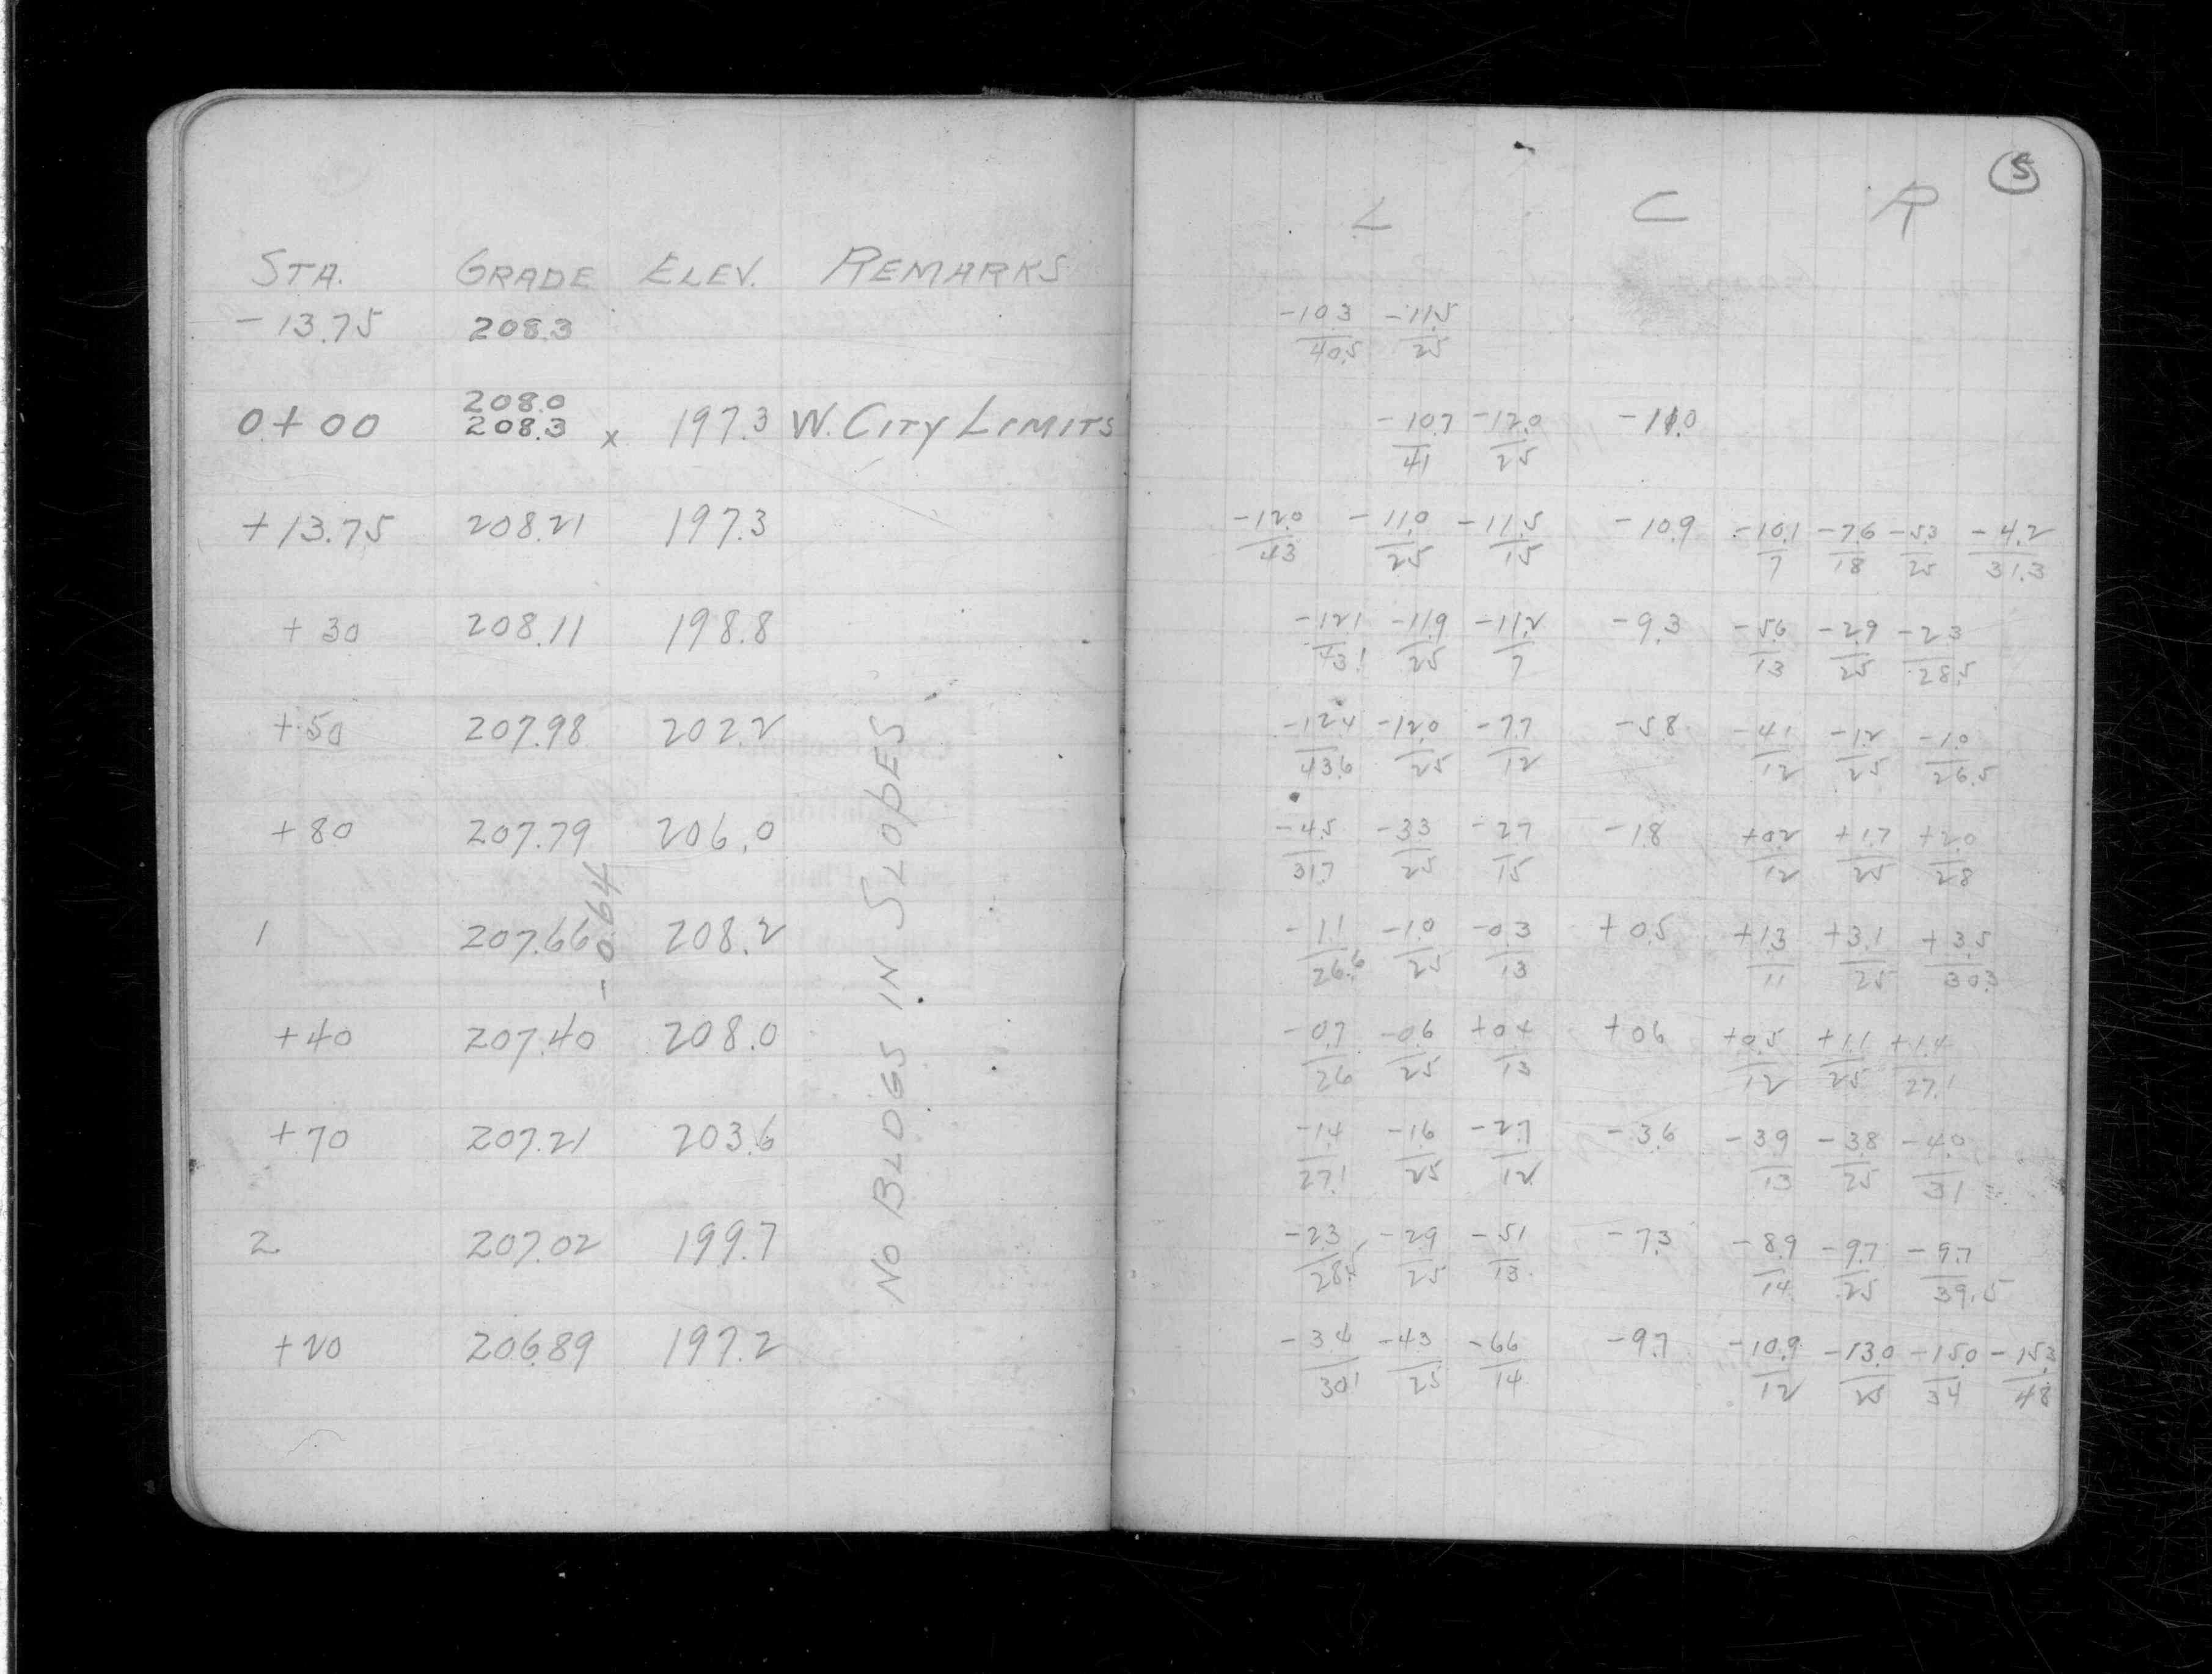 STA. GRADE ELEV. REMARKS
- 13.75 208.3
208.0
0+00 208.3 x 197.3 W. CITY LIMITS
+13.75 208.21 197.3
+30 208.11 198.8
+50 207.98 202.2
+80 207.79 206.0
1 207.66 208.2
+40 207.40 208.0
+70 207.21 203.6
2 207.02 199.7
+20 206.89 197.2
-0.64
NO BLDGS IN SLOPES
5
L C R
-10.3 -11.5
40.5 25
-10.7 -12.0 -11.0
41 25
-12.0 -11.0 -11.5 -10.9 -10.1 -7.6 -5.3 -4.2
43 25 15 7 18 25 31.3
-12.1 -11.9 -11.2 -9.3 -5.6 -2.9 -2.3
43.1 25 7 13 25 28.5
-12.4 -12.0 -7.7 -5.8 -4.1 -1.2 -1.0
43.6 25 12 12 25 26.5
-4.5 -3.3 -2.7 -1.8 +0.2 +1.7 +2.0
31.7 25 15 12 25 28
-1.1 -1.0 -0.3 +0.5 +1.3 +3.1 +3.5
26.6 25 13 11 25 30.3
-0.7 -0.6 +0.4 +0.6 +0.5 +1.1 +1.4
26 25 13 12 25 27.1
-1.4 -1.6 -2.7 -3.6 -3.9 -3.8 -4.0
27.1 25 12 13 25 31
-2.3 -2.9 -5.1 -7.3 -8.9 -9.7 -9.7
28.5 25 13 14 25 39.5
-3.4 -4.3 -6.6 -9.7 -10.9 -13.0 -15.0 -15.3
30.1 25 14 12 25 34 48